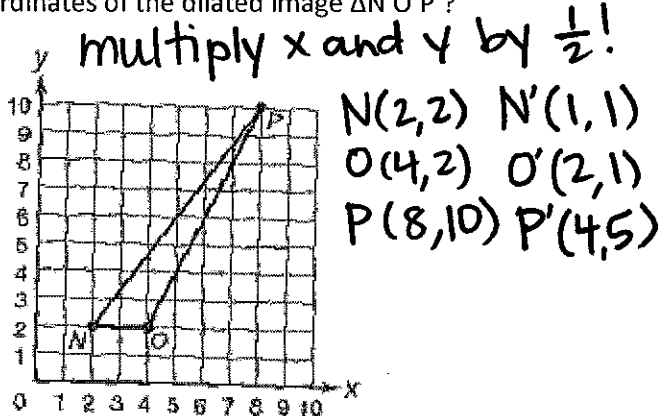 rdinates of the dilated image ΔN'O'P'?
multiply x and y by 1/2!
N(2,2) N'(1,1)
O(4,2) O'(2,1)
P(8,10) P'(4,5)
y
10
9
8
7
6
5
4
3
2
1
P
N O
0 1 2 3 4 5 6 7 8 9 10 X